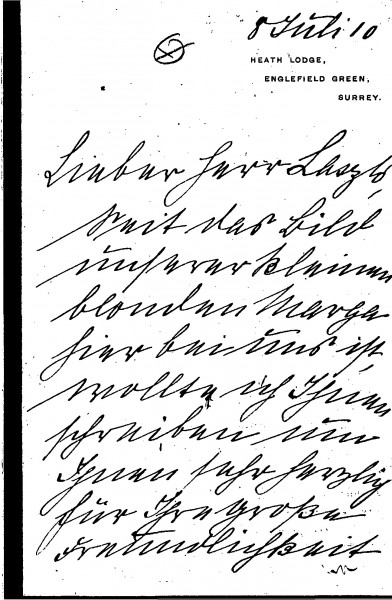 8 Juli 10
HEATH LODGE,
ENGLEFIELD GREEN,
SURREY.
Lieber Herr Laszlo,
Seit das Bild
unserer kleinen
blonden Marga
hier bei uns ist,
wollte ich Ihnen
schreiben um
Ihnen sehr herzlig
für Ihre große
Freundlichkeit